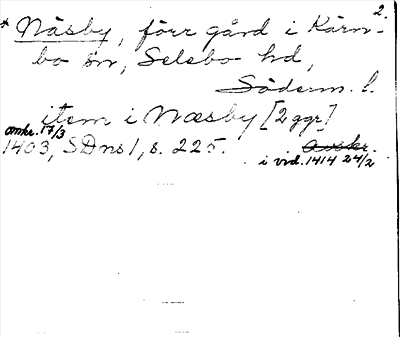 2.
* Näsby, förr gård i Kärn-
bo sn, Selebo hd,
Söderm. l.
item i Næsby [2 ggr]
omkr. 17/3
1403, SDns 1, s. 225. avskr.
i vid. 1414 24/2